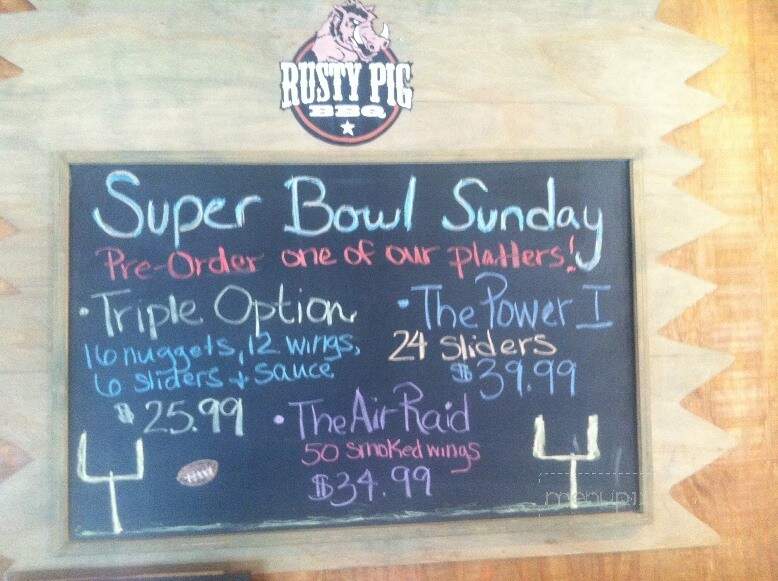 RUSTY PIG
BBQ
Super Bowl Sunday
Pre-Order one of our platters!
• Triple Option
16 nuggets, 12 wings,
6 sliders + sauce
$25.99
• The Power I
24 Sliders
$39.99
• The Air Raid
50 smoked wings
$34.99
menupix